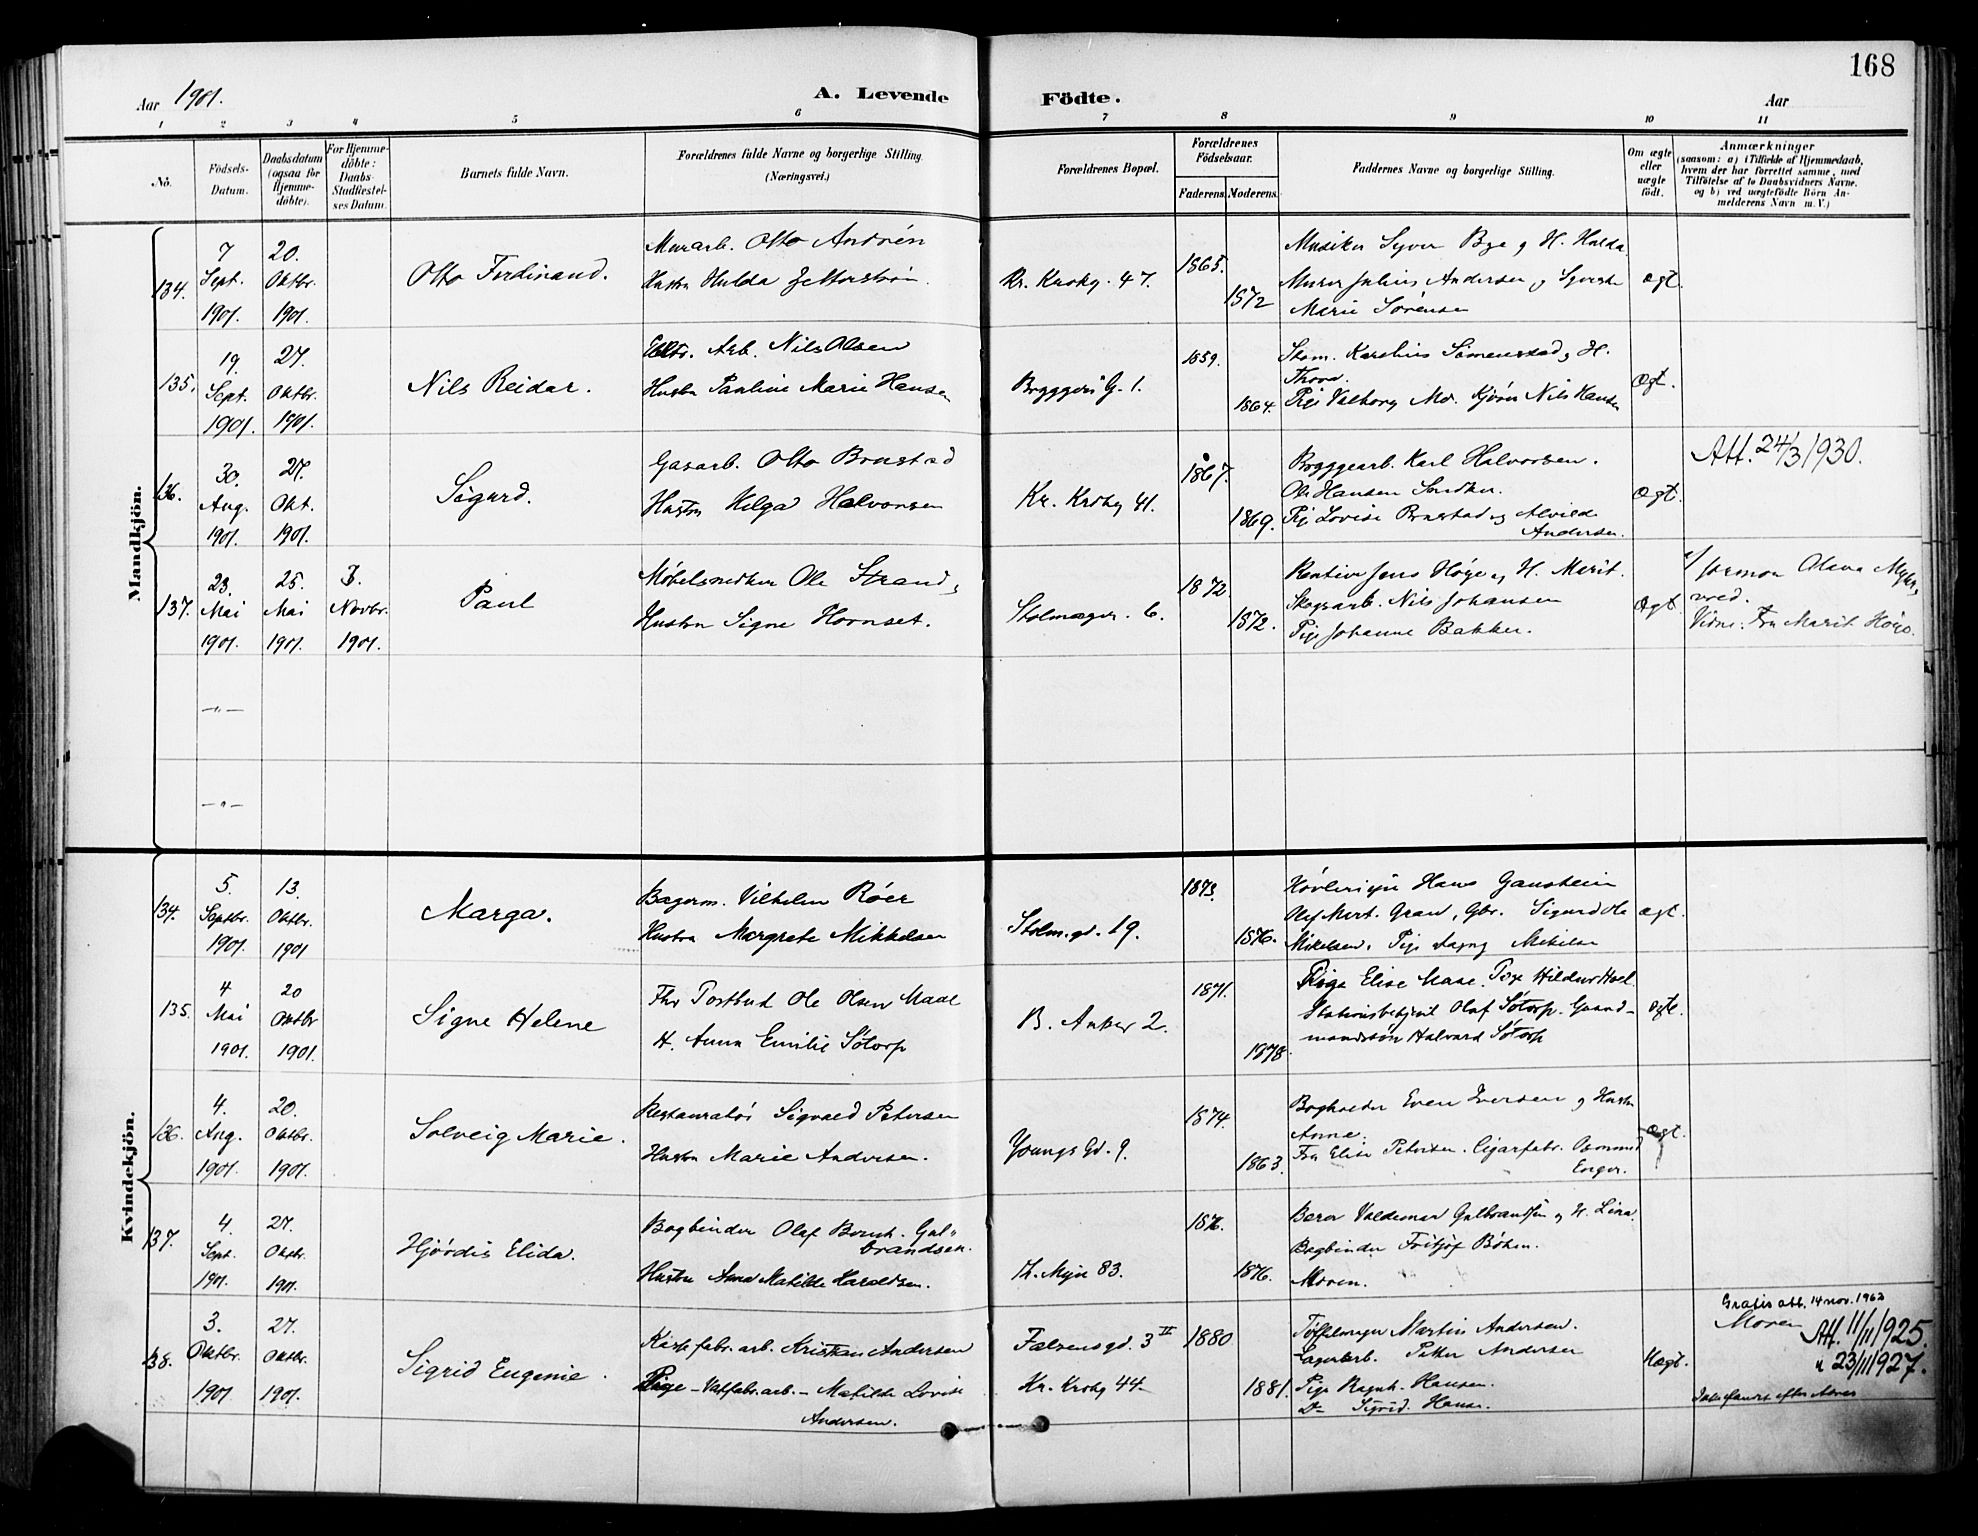 168
Aar 1901.
A. Levende Födte.
Aar
1 2 3 4 5 6 7 8 9 10 11
No.
Födsels-
Datum.
Daabsdatum
(ogsaa for
Hjemme-
döbte).
For Hjemme-
döbte:
Daabs-
Stadfæstel-
ses Datum.
Barnets fulde Navn.
Forældrenes fulde Navne og borgerlige Stilling.
(Næringsvei.)
Forældrenes Bopæl.
Forældrenes
Födselsaar.
Faderens.
Moderens.
Faddernes Navne og borgerlige Stilling.
Om ægte
eller
uægte
födt.
Anmærkninger
(saasom: a) i Tilfælde af Hjemmedaab,
hvem der har forrettet samme, med
Tilföielse af to Daabsvidners Navne.
og b) ved uægtefödte Börn An-
melderens Navn m. V.)
Mandkjön.
134.
7
Sept.
1901.
20.
Oktbr.
1901.
Otto Ferdinand.
Murarb. Otto Andrén
Hustru Hulda Zetterström.
Kr. Krohg. 47.
1865.
1872
Musiker Syver Bye og H. Hulda.
Murer Julius Andersen og
Marie Sørensen
ægt.
135.
19.
Sept.
1901.
27.
Oktbr.
1901.
Nils Reidar.
Arb. Nils Olsen
Hustru Pauline Marie Hansen
Bryggeri G. 1.
1859.
1864.
Karelius Simenstad og H.
Thora.
Pige Valborg Nils Hansen
Ægt.
136.
30.
Aug.
1901.
27.
Okt.
1901.
Sigurd.
Gasarb. Otto Brustad
Hustru Helga Halvorsen
Kr. Krohg 41.
1867.
1869.
Bryggearb. Karl Halvorsen.
Ole Hansen
Pige Lovise Brustad og Alvilde
Andersen.
Ægt.
Att. 24/3 1930.
137.
23.
Mai
1901.
25.
Mai
1901.
3.
Novbr.
1901.
Paul
Møbelsnedker Ole Strand,
Hustru Signe Hornset.
Stolmager. 6.
1872
1872.
Rentier Jens Höge og H. Marit.
Skogsarb. Nils Johansen
Pige Johanne Bakken.
Ægt.
v/ Jormor Olava
Vidne. Fru Marit Höge.
—"—
—"—
Kvindekjön.
134.
5.
Septbr.
1901.
13.
Oktbr.
1901
Marga.
Bagerm. Vilhelm Röer
Hustru Margrete Mikkelsen
Stolm.gd. 19.
1873.
1876.
Hans Ganstein
Gran, Gbr. Sigurd Ole
Mikelsen, Pige
ægt.
135.
4
Mai
1901.
20
Oktbr
1901.
Signe Helene
Fhv Postbud Ole Olsen Maae
H. Anna Emilie Sötorp
B. Anker 2.
1871.
1878.
Pige Elise Maae. Pige Hildur
Stationsbetjent Olaf Sötorp. Gaard-
mandssön Halvard Sötorp
ægte.
136.
4.
Aug.
1901.
20.
Oktbr.
1901.
Solveig Marie.
Restauratör Sigvald Petersen
Hustru Marie Andersen.
Youngs Gd. 9.
1874.
1863.
Bogholder Even Iversen og Hustru
Anne.
Fru Elise Petersen. Cigarfabr. Osmund
Enger.
Ægt.
137.
4.
Sept.
1901.
27.
Oktbr.
1901.
Hjördis Elida.
Bogbinder Olaf Bernh. Gul-
brandsen.
Hustru Anna Matilde Haraldsen.
Th. Myer 83.
1876.
1876.
Valdemar Gulbrandsen og H. Lina.
Bogbinder Fritjof
Moren.
138.
3.
Oktbr.
1901
27.
Oktbr.
1901.
Sigrid Eugenie.
arb. Kristian Andersen
Pige – Vatfabr.arb. – Matilde Lovise
Andersen.
Falsensgd. 3 II
Kr. Krohg 44.
1880
1881.
Martin Andersen.
Lagerarb. Petter Andersen
Pige Ragnh. Hansen.
Do Sigrid. Hansen.
Uægt.
Gratis att. 14 nov. 1962
Moren
Att. 11/11 1925.
" 23/11 1927.